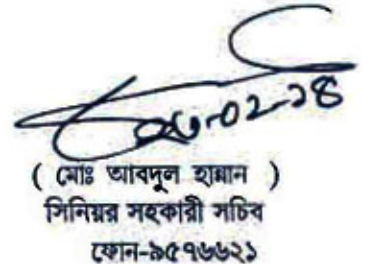 ( মোঃ আবদুল হান্নান )
সিনিয়র সহকারী সচিব
ফোন-৯৫৭৬৬২১